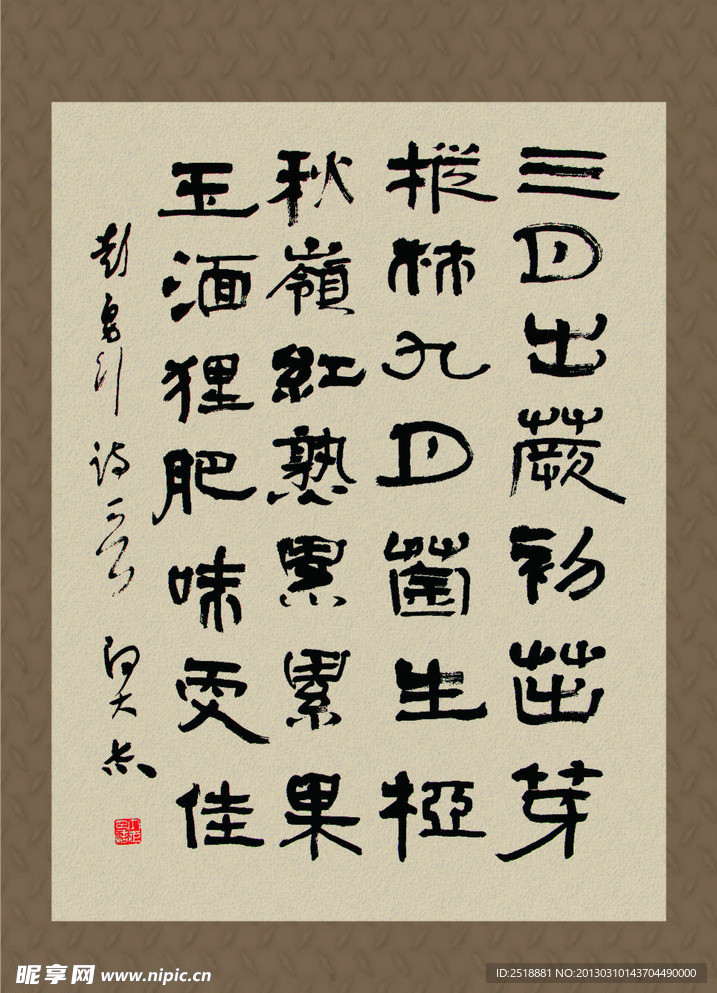 三月出蕨初茁芽
樅林九月菌生椏
秋嶺紅熟累累果
玉面狸肥味更佳
诗一首
昵享网 www.nipic.cn
ID:2518881 NO:20130310143704490000